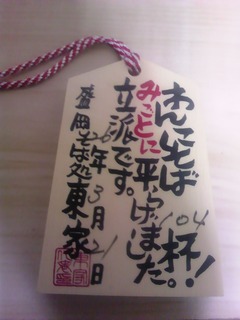 わんこそば104杯!
みごとに平らげました。
立派です。
26年3月21日
盛岡そば処東家